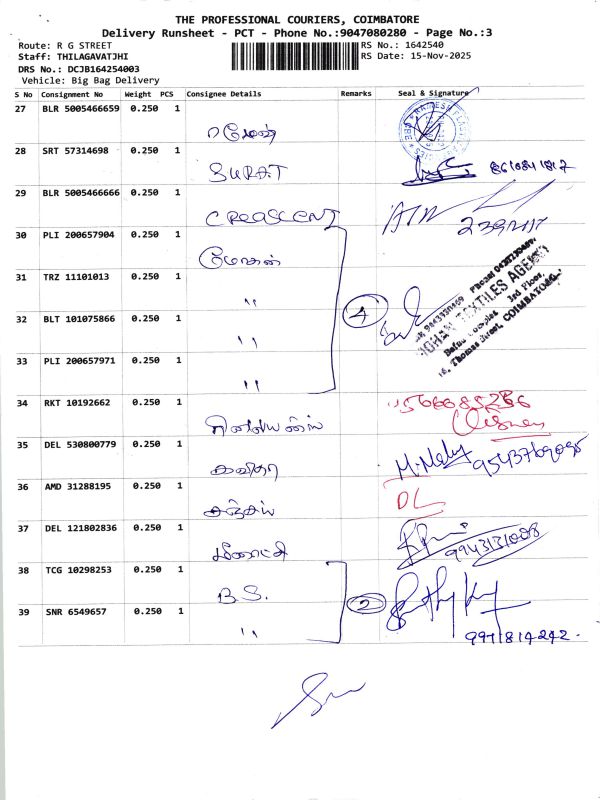 THE PROFESSIONAL COURIERS, COIMBATORE
Delivery Runsheet - PCT - Phone No.:9047080280 - Page No.:3
Route: R G STREET
RS No.: 1642540
Staff: THILAGAVATJHI
RS Date: 15-Nov-2025
DRS No.: DCJB164254003
Vehicle: Big Bag Delivery
S No Consignment No Weight PCS Consignee Details Remarks Seal & Signature
27 BLR 5005466659 0.250 1
ரமேஷ்
28 SRT 57314698 0.250 1
SURAT
29 BLR 5005466666 0.250 1
CREASCENT
30 PLI 200657904 0.250 1
மோகன்
31 TRZ 11101013 0.250 1
"
32 BLT 101075866 0.250 1
" 4
33 PLI 200657971 0.250 1
"
MOHAN TEXTILES AGENCY
3rd Floor,
Thomas Street, COIMBATORE
34 RKT 10192662 0.250 1
35 DEL 530800779 0.250 1
கவிதா 9543769095
36 AMD 31288195 0.250 1
சஞ்சய் DL
37 DEL 121802836 0.250 1
மீனாட்சி 9943131008
38 TCG 10298253 0.250 1
B.S. 2
39 SNR 6549657 0.250 1
"